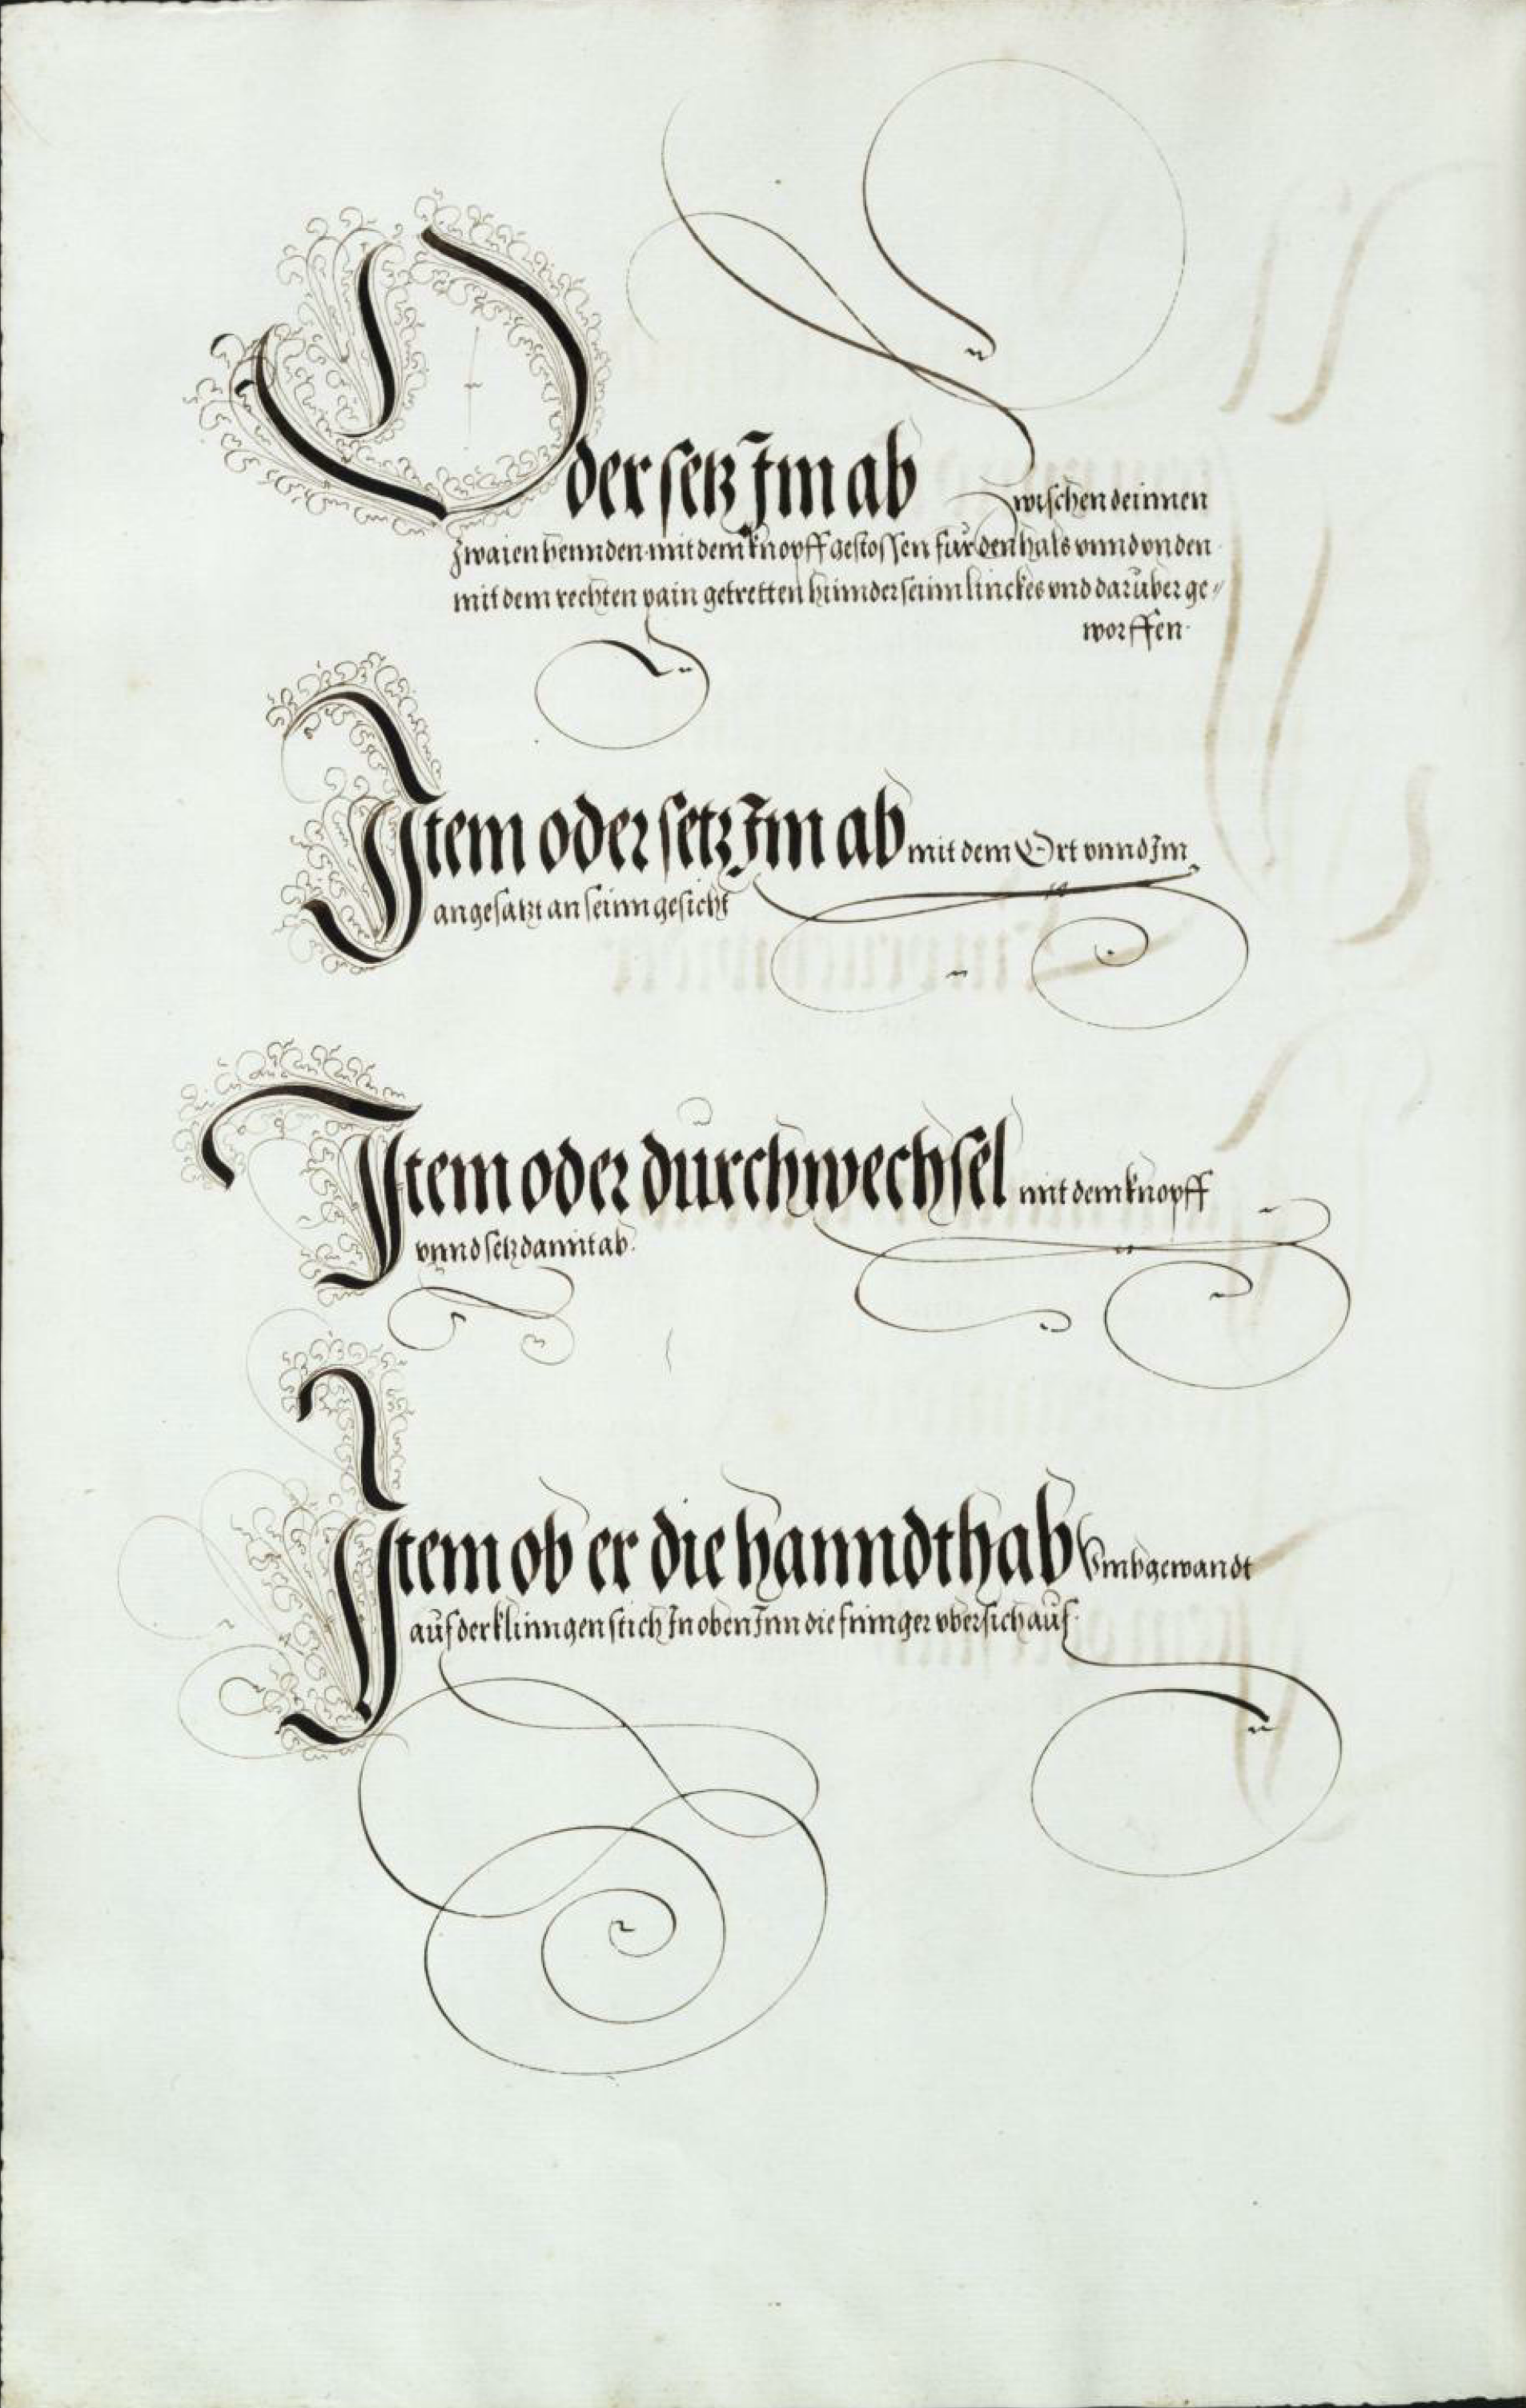 Oder setz Im ab zwischen deinnen
zwaien hennden mit dem knopff gestossen für den hals vnnd vnden
mit dem rechten pain getretten hinnder seinn linckes vnd darüber ge〃
worffen.
Item oder setz Im ab mit dem Ort vnnd Im
angesatzt an seinn gesicht
Item oder dürchwechsel mit dem knopff
vnnd setz damit ab.
Item ob er die hanndt hab vmbgewandt
aüf der klinngen stich In oben Inn die finnger vbersich aüf.